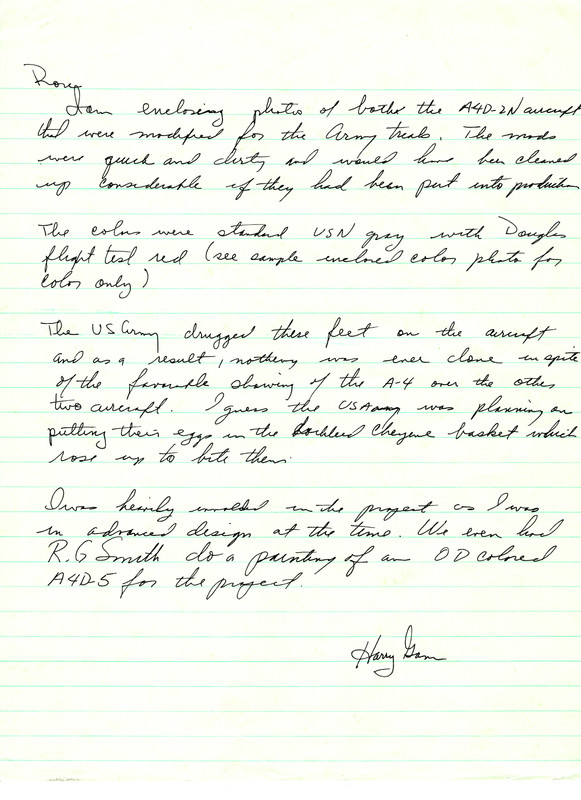 I am enclosing photo of both the A4D-2N aircraft
that were modified for the Army trials. The mods
were quick and dirty and would have been cleaned
up considerable if they had been put into production
The colors were standard USN gray with Douglas
flight test red (see sample enclosed color photo for
color only)
The US Army drugged these feet on the aircraft
and as a result, nothing was ever done in spite
of the favorable showing of the A-4 over the other
two aircraft. I guess the USArmy was planning on
putting their eggs in the Lockheed Cheyene basket which
rose up to bite them.
I was heavily involded in the project as I was
in advanced design at the time. We even had
R.G Smith do a painting of an OD colored
A4D-5 for the project.
Harry